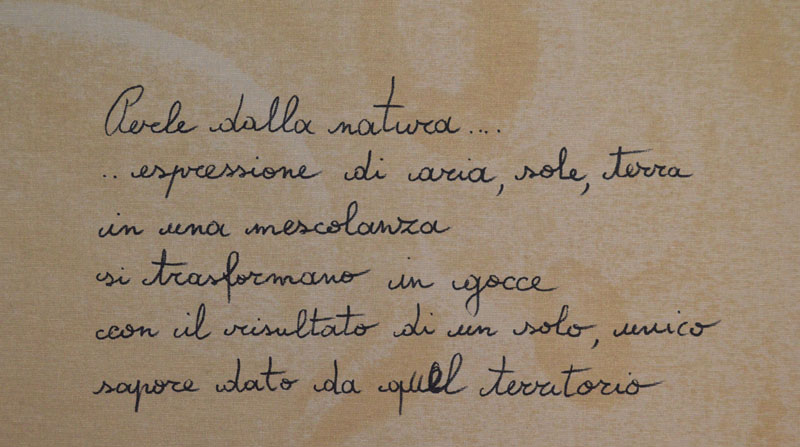 Perle dalla natura....
..espressione di aria, sole, terra
in una mescolanza
si trasformano in gocce
con il risultato di un solo, unico
sapore dato da quel territorio